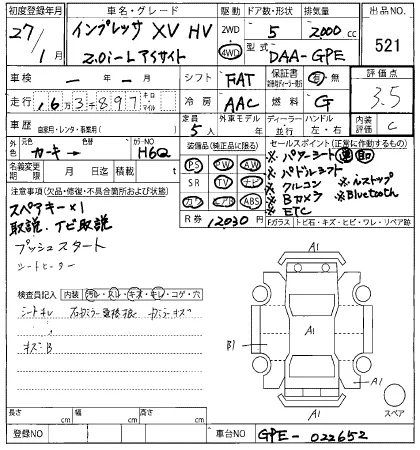 初度登録年月 車名・グレード 駆動 ドア数・形状 排気量 出品NO.
27/1月 インプレッサ XV HV 2WD 4WD 5 2000cc 521
2.0i-L アイサイト 型式 DAA-GPE
車検 ー 年 ー 月 シフト FAT 保証書 有 無 評価点
走行 冷房 AAC 燃料 G 3.5
車歴 自家用・レンタ・事業用( ) 定員 5人 外車モデル 年 ディーラー 並行 ハンドル 左・右 内装評価 C
外色 元色 カーキー 色替 カラーNO H6Q 装備品(純正品に限る) セールスポイント(正常に作動するもの)
名義変更期限 月 日 積載 t PS PW AW
注意事項(欠品・修復・不具合箇所および状態) SR TV ナビ
スペアキー×1 ABS
取説、ナビ取説 R券 12030円
プッシュスタート
シートヒーター
※パワーシート 運 助
※パドルシフト
※クルコン ※ルストップ
※Bカメラ ※Bluetooth
※ETC
Fガラス トビ石・キズ・ヒビ・ワレ・リペア跡
検査員記入 内装 コゲ・穴
キズB
A1
A1
B1
A1
A1
スペア
長さ cm 幅 cm 高さ cm
登録NO 車台NO GPE-022652